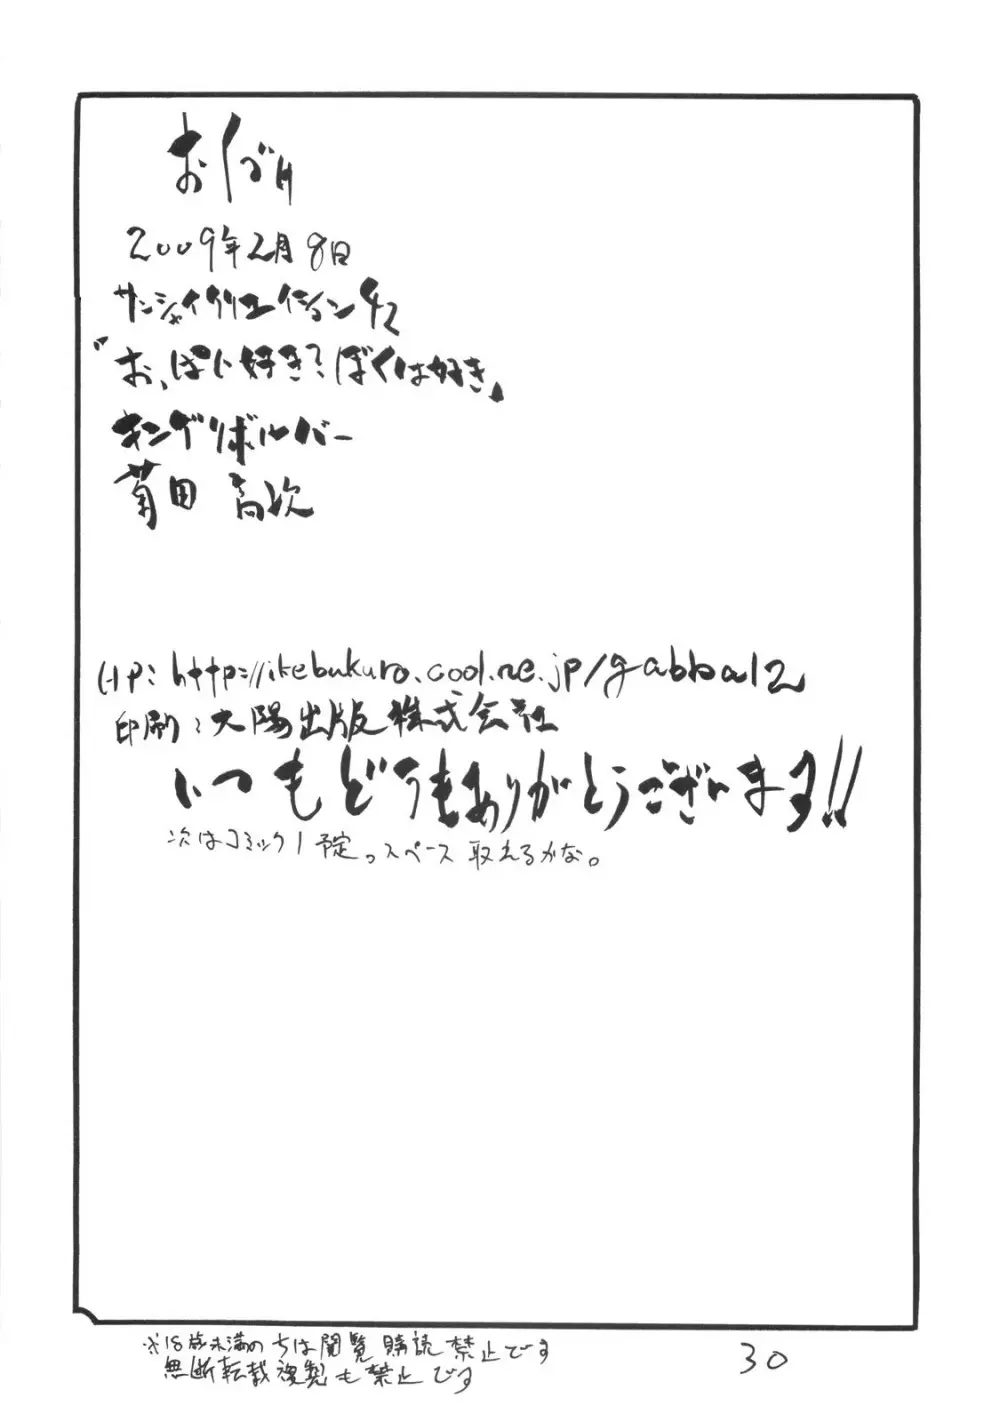 おくづけ
2009年2月8日
サンシャイクリエイション42
「おっぱい好き?ぼくは好き」
キングリボルバー
菊田高次
HP:http://ikebukuro.cool.ne.jp/gabba12
印刷:大陽出版株式会社
いつもどうもありがとうございます!!
次はコミック1予定。スペース取れるかな。
※18歳未満の方は閲覧購読禁止です
無断転載複製も禁止です
30